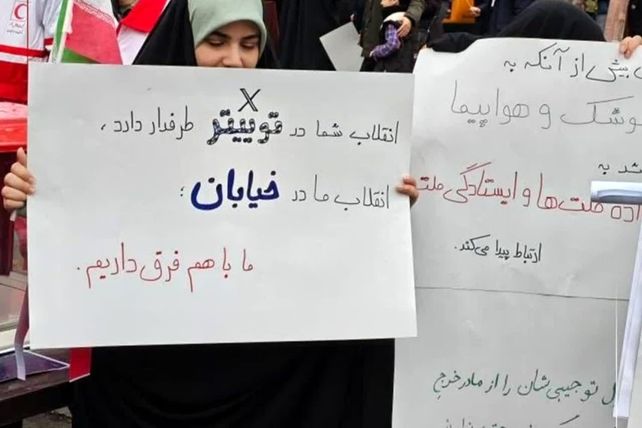 X
انقلاب شما در توییتر طرفدار دارد،
انقلاب ما در خیابان؛
ما با هم فرق داریم.
بیش از آنکه به
موشک و هواپیما
ملت‌ها و ایستادگی ملت
ارتباط پیدا می‌کند.
توجیبی‌شان را از مادر خرج